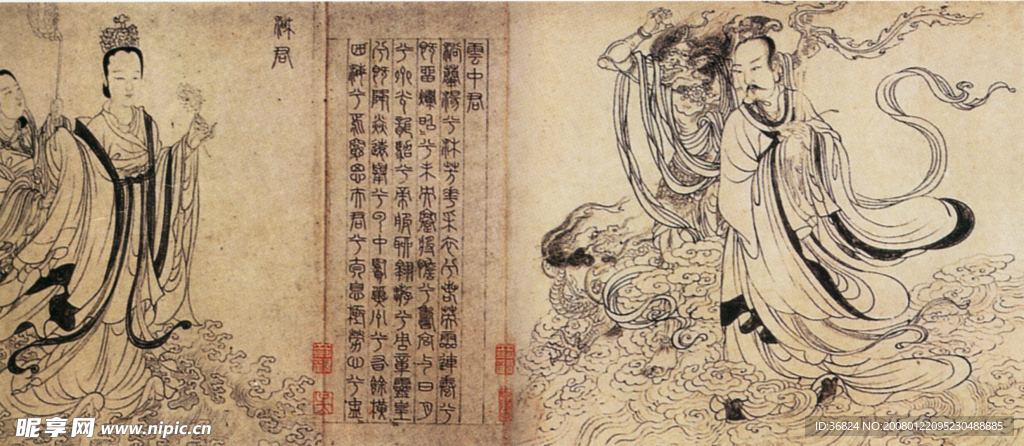 雲中君
浴蘭湯兮沐芳華采衣兮若英靈連蜷兮
既留爛昭昭兮未央蹇將憺兮壽宮與日月
兮齊光龍駕兮帝服聊翱游兮周章靈皇
兮既降猋遠舉兮雲中覽冀州兮有餘橫
四海兮焉窮思夫君兮太息極勞心兮忡
湘君
昵享网 www.nipic.cn
ID:36824 NO.20080122095230488885